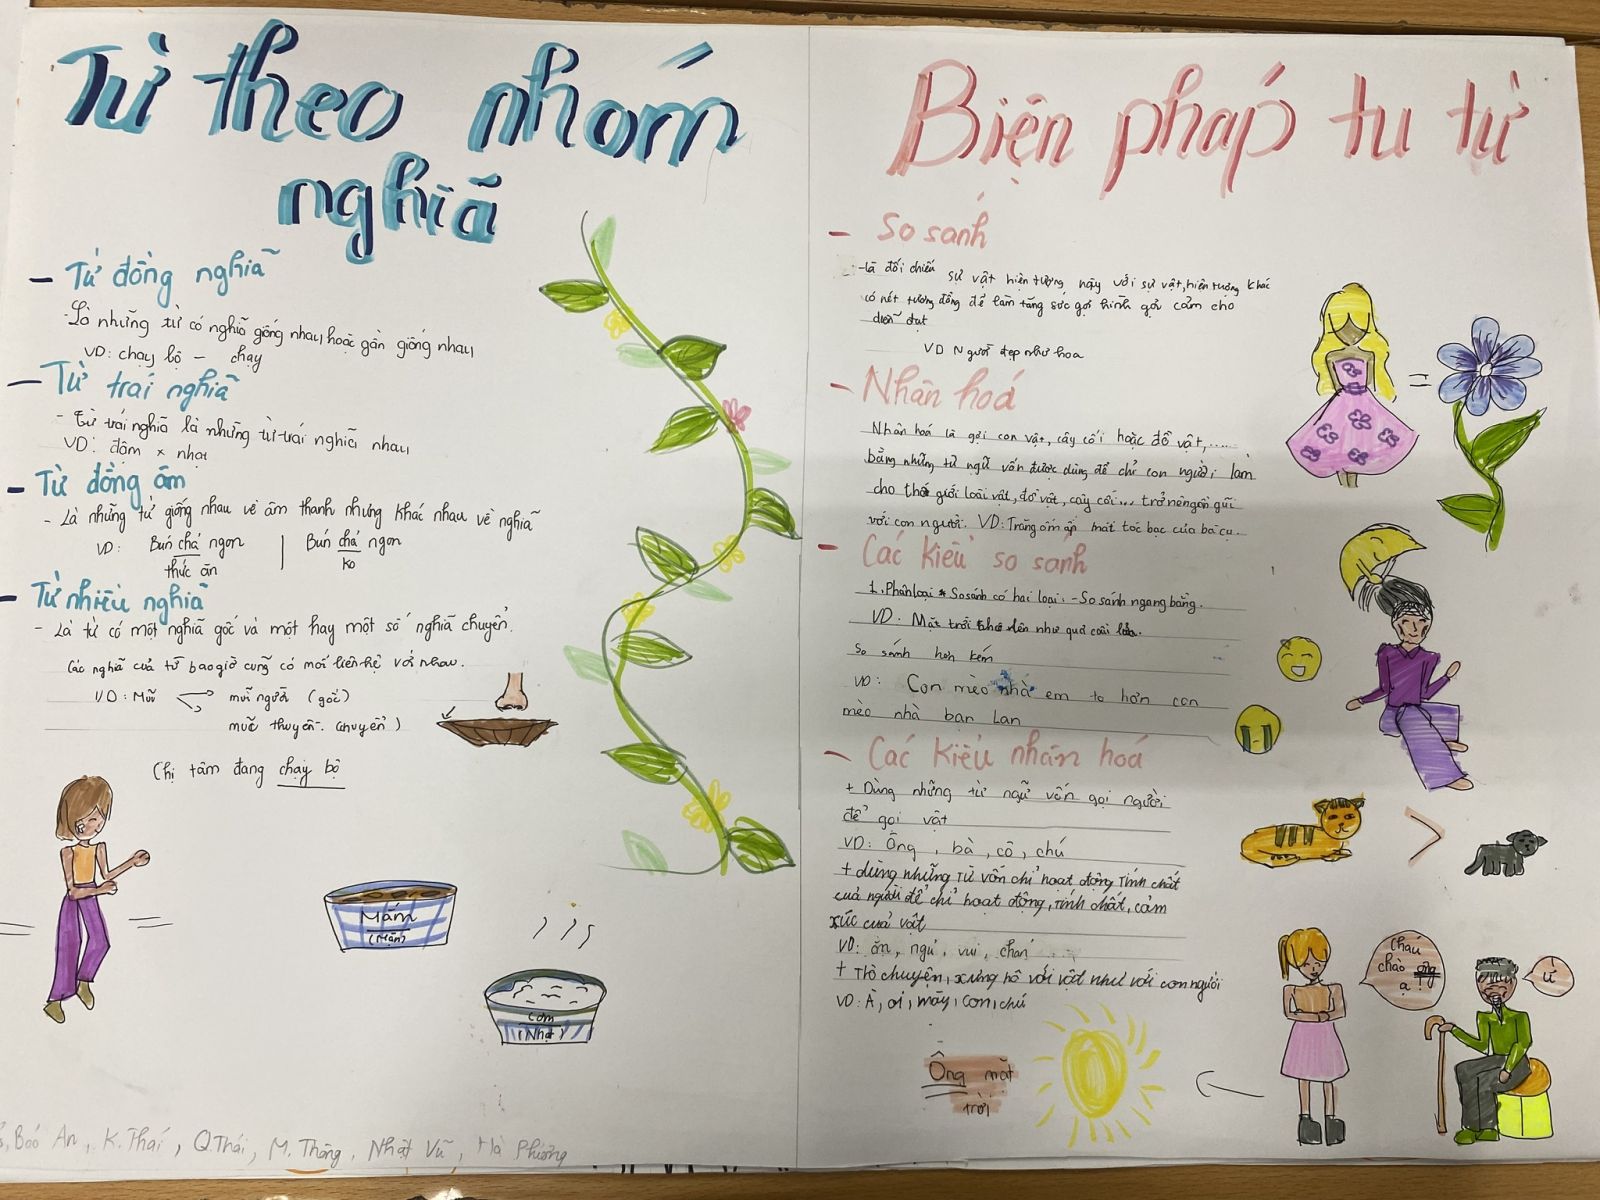 Từ theo nhóm
nghĩa
- Từ đồng nghĩa
- Là những từ có nghĩa giống nhau hoặc gần giống nhau
VD: chạy bộ - chạy
- Từ trái nghĩa
- Từ trái nghĩa là những từ trái nghĩa nhau
VD: đậm × nhạt
- Từ đồng âm
- Là những từ giống nhau về âm thanh nhưng khác nhau về nghĩa
VD: Bún chả ngon | Bún chả ngon
thức ăn ko
- Từ nhiều nghĩa
- Là từ có một nghĩa gốc và một hay một số nghĩa chuyển.
Các nghĩa của từ bao giờ cũng có mối liên hệ với nhau.
VD: Mũi mũi người (gốc)
mũi thuyền. (chuyển)
Chị tâm đang chạy bộ
Mắm
(Mặn)
Cơm
(Nhạt)
Bảo An, K.Thái, Q.Thái, M.Thăng, Nhật Vũ, Hà Phương
Biện pháp tu từ
- So sánh
- là đối chiếu sự vật hiện tượng này với sự vật, hiện tượng khác
có nét tương đồng để làm tăng sức gợi hình gợi cảm cho
diễn đạt
VD Người đẹp như hoa
- Nhân hoá
Nhân hoá là gọi con vật, cây cối hoặc đồ vật,.....
bằng những từ ngữ vốn được dùng để chỉ con người; làm
cho thế giới loài vật, đồ vật, cây cối... trở nên gần gũi
với con người. VD: Trăng ôm ấp mái tóc bạc của bà cụ.
- Các kiểu so sánh
1. Phân loại * So sánh có hai loại: - So sánh ngang bằng.
VD. Mặt trời lên như quả cầu lửa.
So sánh hơn kém
VD: Con mèo nhà em to hơn con
mèo nhà bạn Lan
- Các kiểu nhân hoá
+ Dùng những từ ngữ vốn gọi người
để gọi vật
VD: Ông, bà, cô, chú
+ dùng những từ vốn chỉ hoạt động tính chất
của người để chỉ hoạt động, tính chất, cảm
xúc của vật
VD: ăn, ngủ, vui, chán ....
+ Trò chuyện, xưng hô với vật như với con người
VD: À, ơi, mày, con, chú
=
>
Cháu
chào ông
ạ!
Ừ
Ông mặt
trời